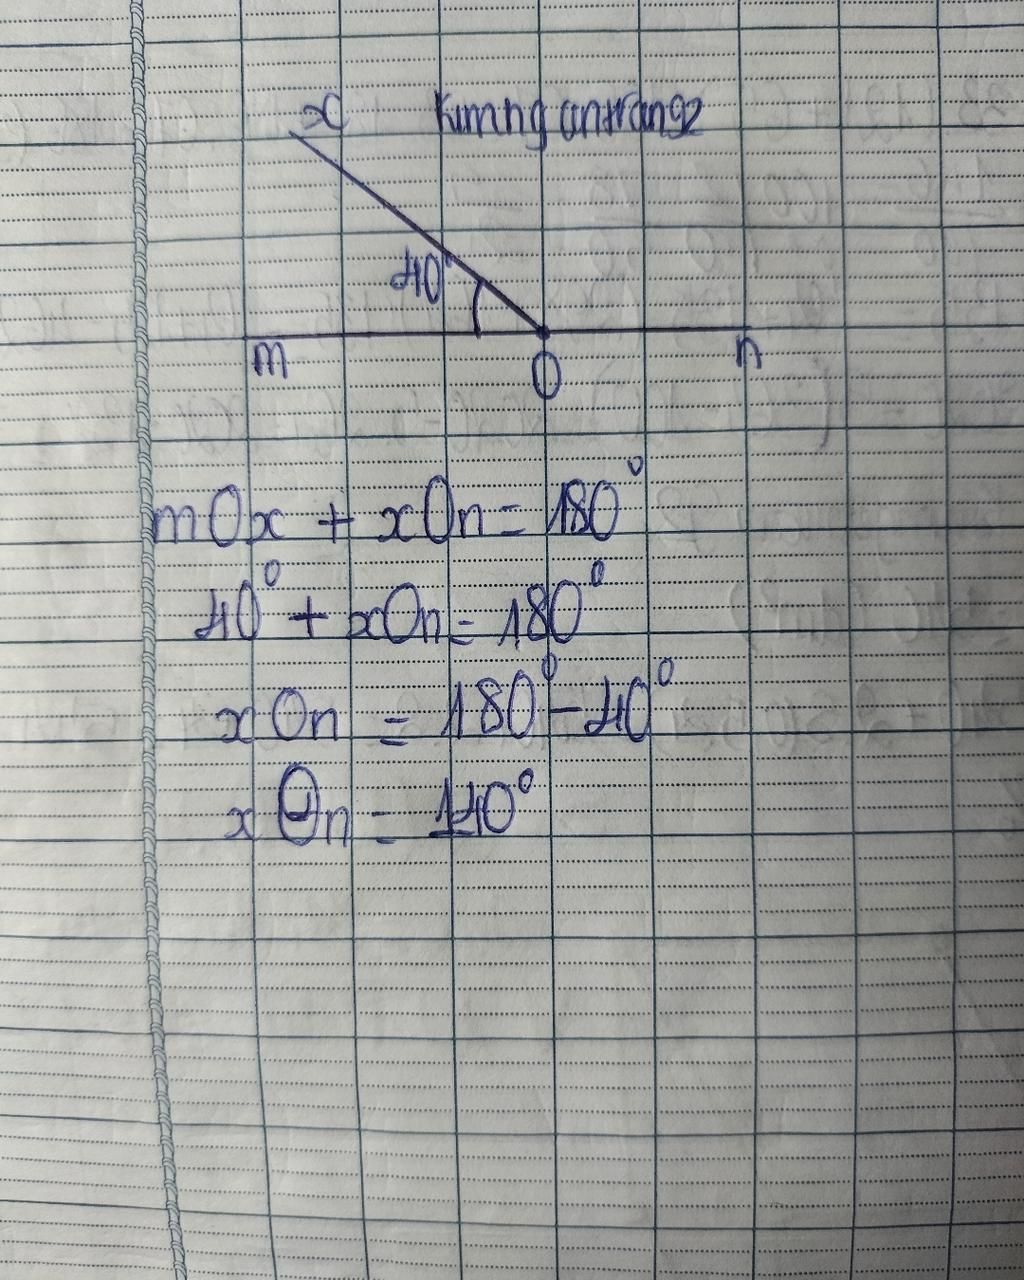 x kimngantrang2
40°
m O n
mOx + xOn = 180°
40° + xOn = 180°
xOn = 180° - 40°
xOn = 140°